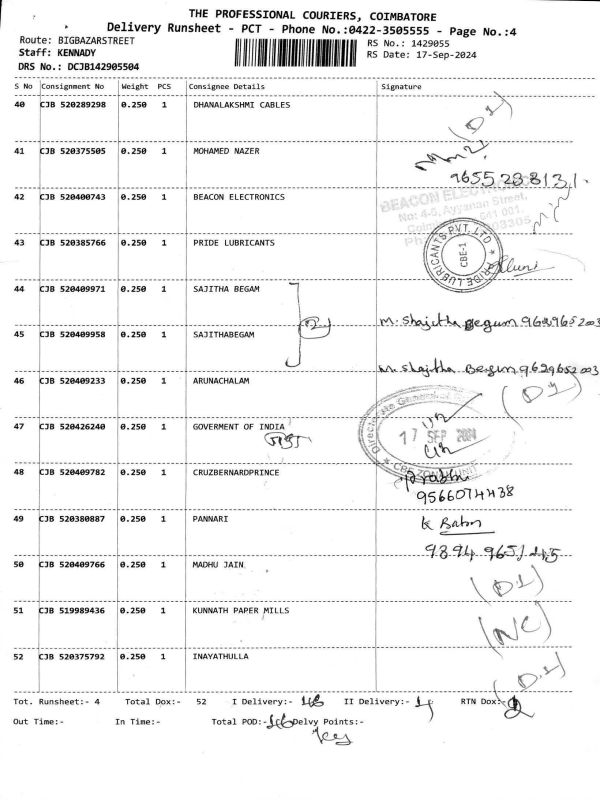 THE PROFESSIONAL COURIERS, COIMBATORE
Delivery Runsheet - PCT - Phone No.:0422-3505555 - Page No.:4
Route: BIGBAZARSTREET
RS No.: 1429055
Staff: KENNADY
RS Date: 17-Sep-2024
DRS No.: DCJB142905504
S No Consignment No Weight PCS Consignee Details Signature
40 CJB 520289298 0.250 1 DHANALAKSHMI CABLES (D1)
41 CJB 520375505 0.250 1 MOHAMED NAZER
9655238131.
42 CJB 520400743 0.250 1 BEACON ELECTRONICS
BEACON ELECTRONICS
No: 4-5, Ayyanan Street,
641 001
43 CJB 520385766 0.250 1 PRIDE LUBRICANTS
PRIDE LUBRICANTS PVT. LTD
CBE-1
44 CJB 520409971 0.250 1 SAJITHA BEGAM
2
M. Shajitha Begum 9629652003
45 CJB 520409958 0.250 1 SAJITHABEGAM
M. Shajitha Begum 9629652003
46 CJB 520409233 0.250 1 ARUNACHALAM (D1)
47 CJB 520426240 0.250 1 GOVERMENT OF INDIA
Directorate General of
17 SEP 2024
48 CJB 520409782 0.250 1 CRUZBERNARDPRINCE
Prabhu
9566074438
49 CJB 520380887 0.250 1 PANNARI
9894 965125
50 CJB 520409766 0.250 1 MADHU JAIN (D1)
51 CJB 519989436 0.250 1 KUNNATH PAPER MILLS (NC)
52 CJB 520375792 0.250 1 INAYATHULLA (D.1)
Tot. Runsheet:- 4 Total Dox:- 52 I Delivery:- 46 II Delivery:- 4 RTN Dox:- 2
Out Time:- In Time:- Total POD:- 46 Delvy Points:-
Key